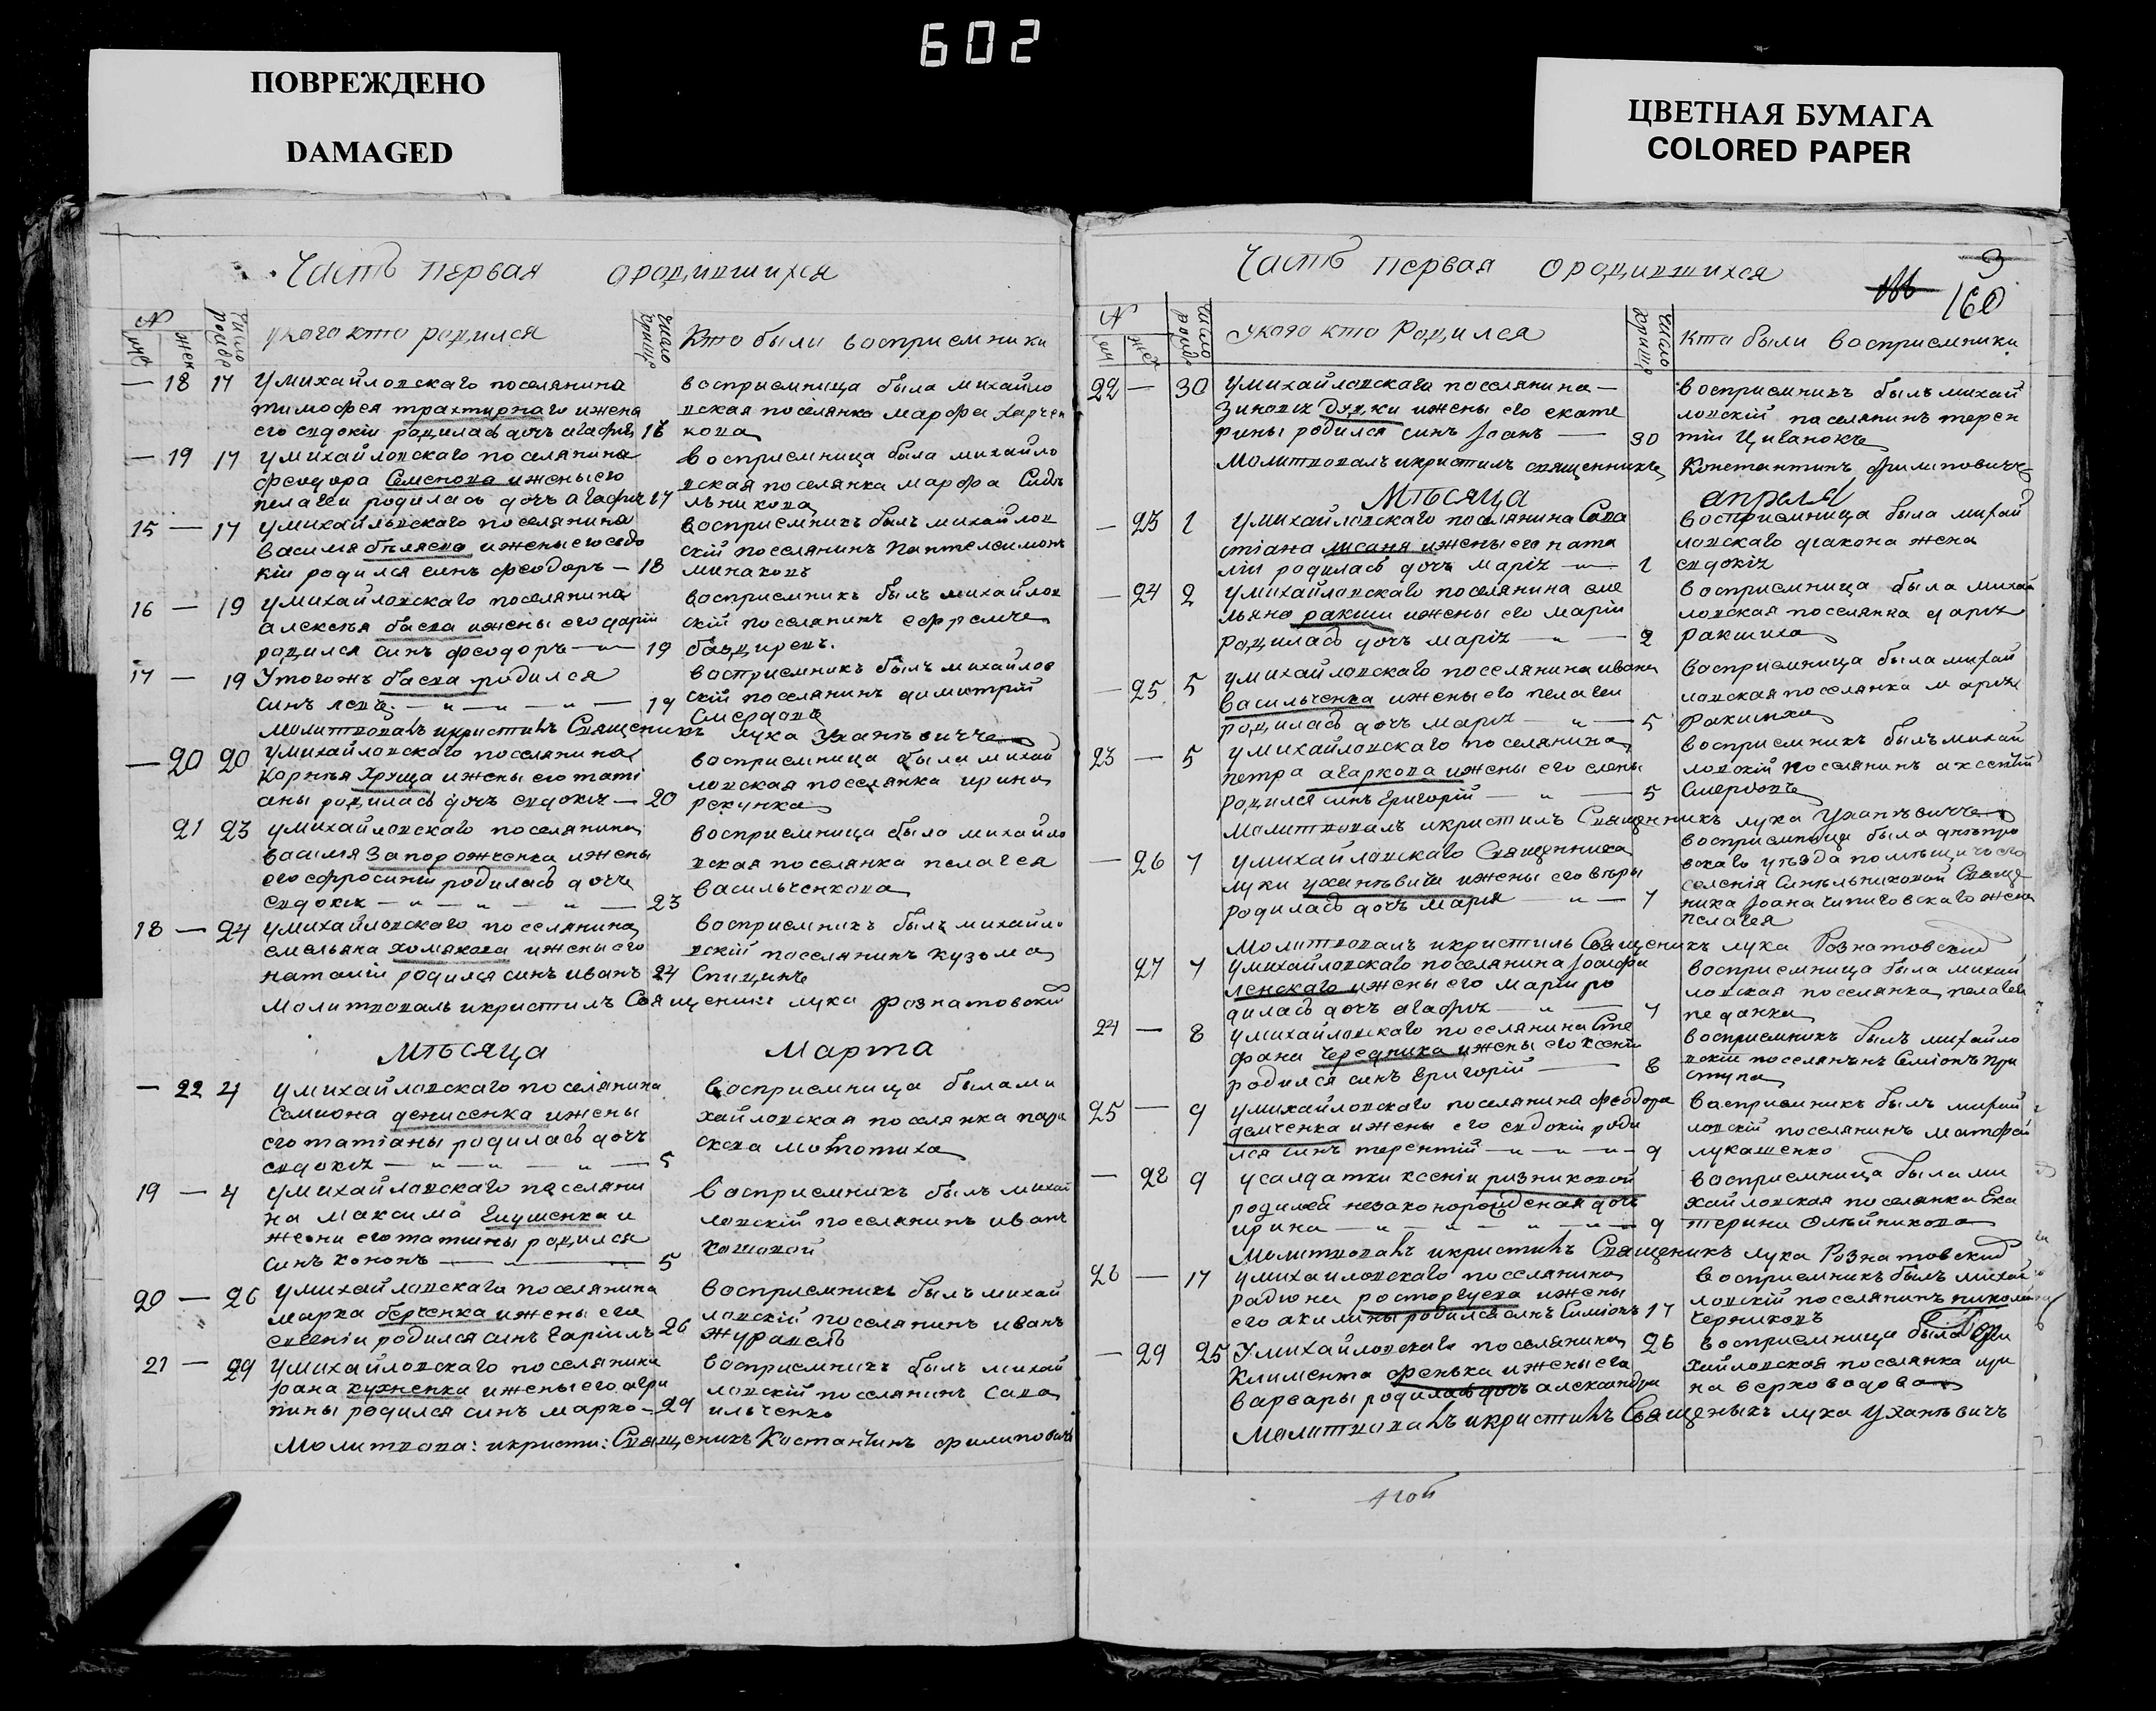 602
ПОВРЕЖДЕНО
DAMAGED
ЦВЕТНАЯ БУМАГА
COLORED PAPER
Часть первая ородившихся
N
муж
жен
число рожде
укого кто родился
число крище
Кто были восприемники
— 18 17 умихайловскаго поселянина
тимофея трактирнаго ижены
его евдокіи родилась дочь агафія 17
восприемница была михайло
вская поселянка марфа харчен
кова
— 19 17 умихайловскаго поселянина
феодора Семенова иженыего
пелагеи родилась дочь агафия 17
восприемница была михайло
вская поселянка марфа Сидь
льникова
15 — 17 умихайловскаго поселянина
василя беляева иженыегоевдо
кіи родился синъ феодоръ — 18
восприемникъ былъ михайлов
скій поселянинъ пантелеимонъ
минаковъ
16 — 19 умихайловскаго поселянина
алексея баева ижены его дарій
родился синъ феодоръ — 19
восприемникъ былъ михайлов
скій поселянинъ ефремъ
бандиревъ.
17 — 19 Утогожъ баева родился
синъ левъ — „ — „ — „ — 19
восприемникъ былъ михайлов
скій поселянинъ димитрій
Смердовъ
молитвовалъ икристилъ Священикъ лука Уханъвичъ
— 20 20 умихайловскаго поселянина
Корнъя Хруща ижены его тати
аны родилась дочь евдокія — 20
восприемница была михай
ловская поселянка ирина
рекунка
21 23 умихайловскаго поселянина
василя Запорожченка ижены
его ефросиніи родилась дочь
Евдокія — „ — „ — „ — 23
восприемница была михайло
вская поселянка пелагея
васильченкова
18 — 24 умихайловскаго поселянина
емельяна хомякова ижены его
наталіи родился синъ иванъ 24
восприемникъ былъ михайло
вскій поселянинъ кузома
Спицинъ
Молитвовалъ икристилъ Священикъ лука Рознатовскій
Мъсяца Марта
— 22 4 умихайловскаго поселянина
Семиона денисенка ижены
его татіаны родилась дочь
евдокія — „ — „ — „ — 5
восприемница была ми
хайловская поселянка пара
скева
19 — 4 умихайловскаго поселяни
на максима глушенка и
жени его татіаны родился
синъ кононъ — 5
восприемникъ былъ михай
ловскій поселянинъ иванъ
Кошовой
20 — 26 умихайловскаго поселянина
марка берченка ижены его
евгеніи родился синъ гаріилъ 26
восприемникъ былъ михай
ловскій поселянинъ иванъ
журавель
21 — 29 умихайловскаго поселянина
кухненка ижены его агри
пины родился синъ марко — 29
восприемникъ былъ михай
ловскій поселянинъ Сава
ильченко
Молитвова: икристи: Священикъ Костантинъ филиповичъ
Часть первая ородившихся
3
160
N
муж
жен
число рожде
укого кто Родился
число крище
кто были восприемники
22 — 30 умихайловскаго поселянина —
зиновія дудки ижены его екате
рины родился синъ Іоанъ — 30
восприемникъ былъ михай
ловскій поселянинъ терен
тіи Циганокъ
Молитвовалъ икристилъ священникъ Константинъ филиповичъ
Мъсяца апреля
— 23 1 умихайловскаго поселянина Сава
стіана лисаня иженыего ната
ліи родилась дочъ марія — 1
восприемница была михай
ловскаго діакона жена
евдокія
— 24 2 умихайловскаго поселянина еме
льяна ракши ижены его маріи
родилась дочъ марія — „ — 2
восприемница была михай
ловская поселянка дарія
ракшиха
— 25 5 умихайловскаго поселянина ивана
васильченка ижены его пелагеи
родилась дочъ марія — „ — 5
восприемница была михай
ловская поселянка марія
ракшиха
23 — 5 умихайловскаго поселянина
петра агаркова ижены его елены
родился синъ григорій — „ — 5
восприемникъ былъ михай
ловскій поселянинъ аксентій
Смердовъ
Молитвовалъ икристилъ Священикъ лука Уханъвичъ
— 26 7 умихайловскаго Священника
луки уханъвича ижены его въры
родилась дочъ мария — „ — 7
восприемница была днъпро
вскаго уъзда помъщичьего
селенія Синъльниковой Свяще
ника Іоана Чипиговскаго жена
пелагея
Молитвовалъ икристилъ Священикъ лука Рознатовскій
27 7 умихайловскаго поселянина Іоасафа
ленскаго ижены его маріи ро
дилась дочъ агафія — „ — 7
восприемница была михай
ловская поселянка пелагея
педанка
24 — 8 умихайловскаго поселянина Сте
фана Чередника ижены его ксеніи
родился синъ григорій — 8
восприемникъ былъ михайло
вскій поселянинъ Семіонъ при
ступа
25 — 9 умихайловскаго поселянина феодора
демченка ижены его евдокіи роди
лся синъ терентій — „ — „ — 9
восприемникъ былъ михай
ловскій поселянинъ матфей
лукашенко
— 28 9 усалдатки ксеніи ризниковой
родилась незаконорожденая дочъ
ирина — „ — „ — „ — 9
восприемница была ми
хайловская поселянка Ека
терина Олъйникова
Молитвовалъ икристилъ Священикъ лука Рознатовскій
26 — 17 умихаиловскаго поселянина
радиона росторгуева ижены
его акилины родился синъ Симіонъ 17
восприемникъ былъ михай
ловскій поселянинъ николай
Черниковъ
— 29 25 Умихайловскаго поселянина 26
Климента фенька ижены его
варвары родилась дочъ александра
восприемница была ми
хайловская поселянка ири
на верховодова
Молитвовалъ икристилъ Священыкъ лука Уханъвичъ